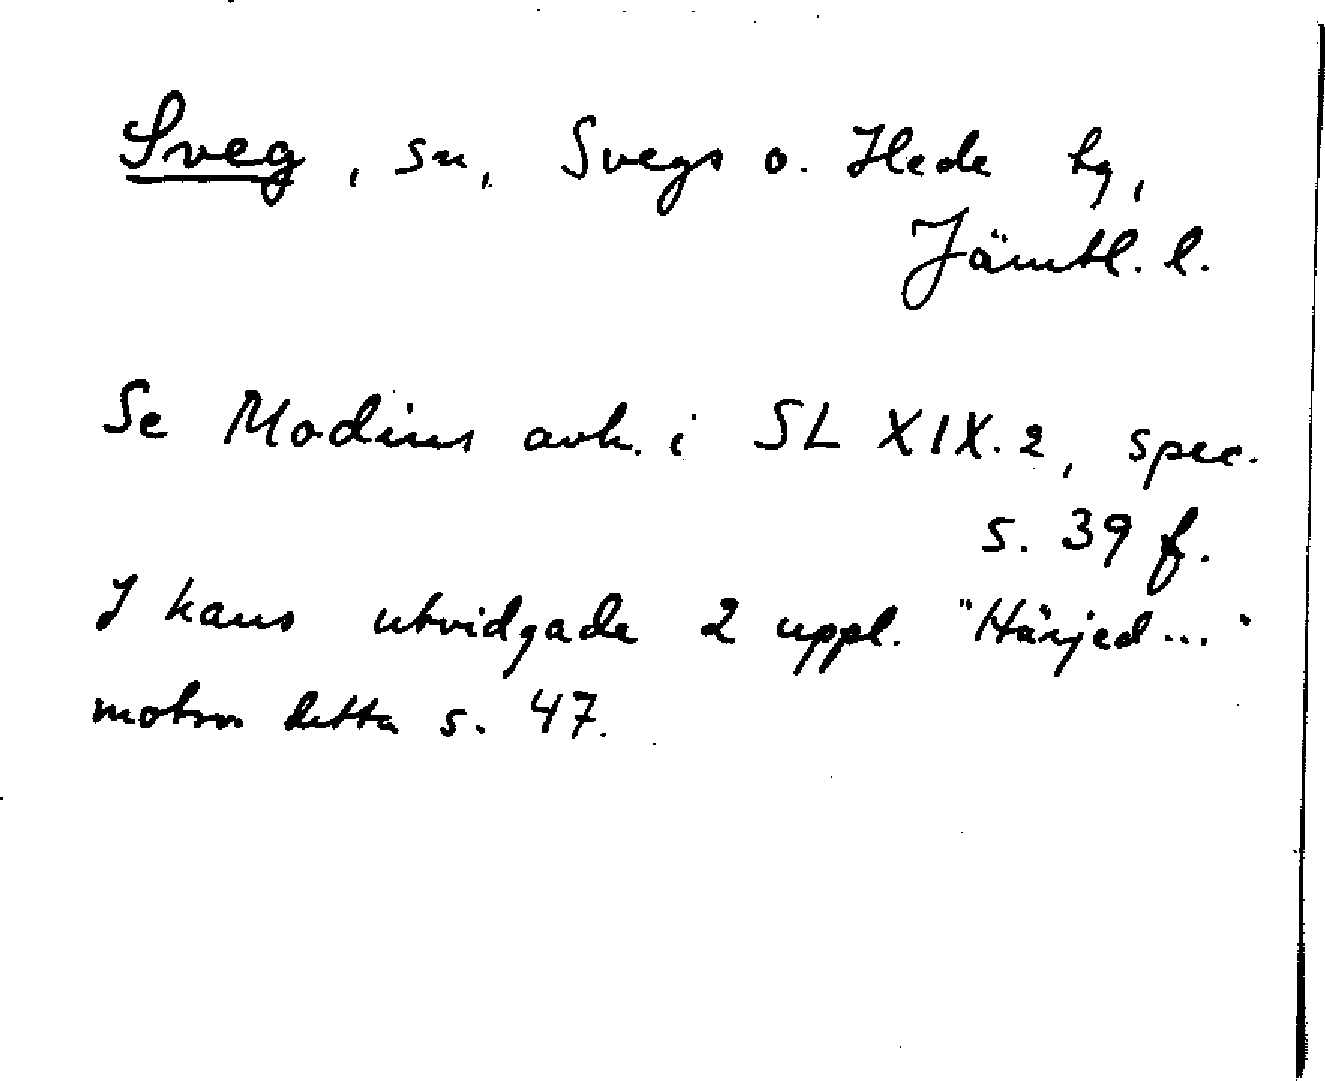 Sveg, sn, Svegs o. Hede hg,
Jämtl. l.
Se Modins avh. i SL XIX. 2, spec.
s. 39 f.
I hans utvidgade 2 uppl. "Härjed..."
motsv. detta s. 47.